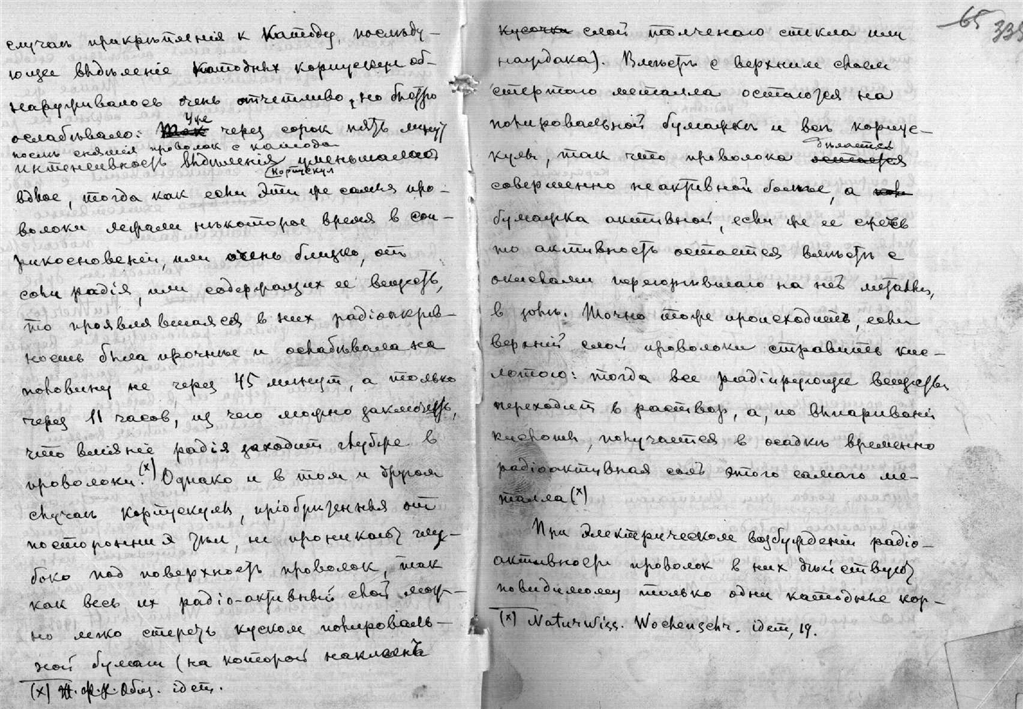 случаѣ прикрѣпленія к катоду, послѣду-
ющее выдѣленіе катодных корпускул об-
наруживалось очень отчетливо, но быстро
ослабѣвало: уже через сорок пять минут
послѣ снятія проволок с катода
интенсивность выдѣленія корпускул уменьшалась
вдвое, тогда как если эти же самыя про-
волоки лежали нѣкоторое время в соп-
рикосновеніи, или очень близко, от
соли радія, или содержащих ее веществ,
то проявлявшаяся в них радіоактив-
ность была прочнѣе и ослабѣвала на
половину не через 45 минут, а только
через 11 часов, из чего можно заключить,
что вліяніе радія заходит глубже в
проволоки.(x) Однако и в том и другом
случаѣ корпускулы, пріобрѣтенныя от
посторонних тѣл, не проникают глу-
боко под поверхность проволок, так
как весь их радіо-активный слой мож-
но легко стереть куском полироваль-
ной бумаги (на которой наклеен
(x) Ж. Ф. Х. Общ. idem.
65
339
кусочки слой толченого стекла или
наждака). Вмѣстѣ с верхним слоем
стертого металла остаются на
полировальной бумажкѣ и всѣ корпус-
кулы, так что проволока дѣлается
совершенно неактивной болѣе, а
бумажка активной, если же ее сжечь
то активность остается вмѣстѣ с
окислами перешедшаго на неё металла,
в золѣ. Точно тоже происходит, если
верхній слой проволоки стравить кис-
лотою: тогда все радіирующее вещество
переходит в раствор, а, по выпариваніи
кислоты, получается в осадкѣ временно
радіоактивная соль этого самаго ме-
талла (x)
При электрическом возбужденіи радіо-
активности проволок в них дѣйствуют
повидимому только одни катодные кор-
(x) Naturwiss. Wochenschr. idem, 19.